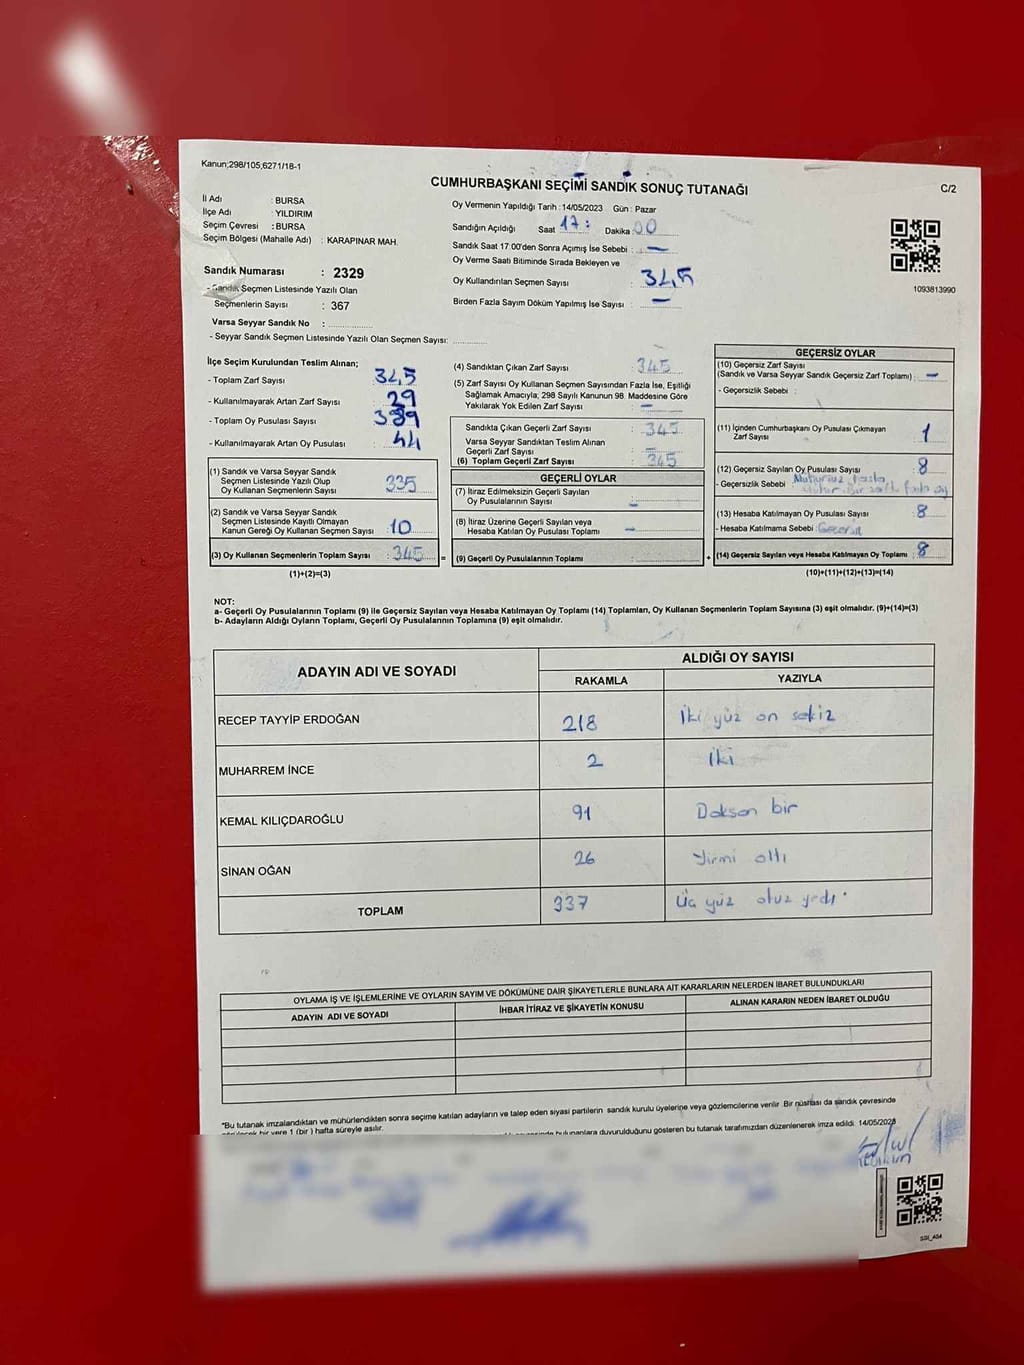 Kanun;298/105,6271/18-1
CUMHURBAŞKANI SEÇİMİ SANDIK SONUÇ TUTANAĞI
C/2
İl Adı : BURSA
İlçe Adı : YILDIRIM
Seçim Çevresi : BURSA
Seçim Bölgesi (Mahalle Adı) : KARAPINAR MAH.
Sandık Numarası : 2329
- Sandık Seçmen Listesinde Yazılı Olan
Seçmenlerin Sayısı : 367
Varsa Seyyar Sandık No :
- Seyyar Sandık Seçmen Listesinde Yazılı Olan Seçmen Sayısı:
Oy Vermenin Yapıldığı Tarih : 14/05/2023 Gün : Pazar
Sandığın Açıldığı Saat 17: Dakika : 00
Sandık Saat 17:00'den Sonra Açımış İse Sebebi : —
Oy Verme Saati Bitiminde Sırada Bekleyen ve
Oy Kullandırılan Seçmen Sayısı : 345
Birden Fazla Sayım Döküm Yapılmış İse Sayısı : —
1093813990
İlçe Seçim Kurulundan Teslim Alınan;
- Toplam Zarf Sayısı : 345
- Kullanılmayarak Artan Zarf Sayısı : 29
- Toplam Oy Pusulası Sayısı : 389
- Kullanılmayarak Artan Oy Pusulası : 44
(1) Sandık ve Varsa Seyyar Sandık
Seçmen Listesinde Yazılı Olup
Oy Kullanan Seçmenlerin Sayısı : 335
(2) Sandık ve Varsa Seyyar Sandık
Seçmen Listesinde Kayıtlı Olmayan
Kanun Gereği Oy Kullanan Seçmen Sayısı : 10
(3) Oy Kullanan Seçmenlerin Toplam Sayısı : 345 =
(1)+(2)=(3)
(4) Sandıktan Çıkan Zarf Sayısı : 345
(5) Zarf Sayısı Oy Kullanan Seçmen Sayısından Fazla İse, Eşitliği
Sağlamak Amacıyla; 298 Sayılı Kanunun 98. Maddesine Göre
Yakılarak Yok Edilen Zarf Sayısı : —
Sandıkta Çıkan Geçerli Zarf Sayısı : 345
Varsa Seyyar Sandıktan Teslim Alınan
Geçerli Zarf Sayısı : —
(6) Toplam Geçerli Zarf Sayısı : 345
GEÇERLİ OYLAR
(7) İtiraz Edilmeksizin Geçerli Sayılan
Oy Pusulalarının Sayısı : —
(8) İtiraz Üzerine Geçerli Sayılan veya
Hesaba Katılan Oy Pusulası Toplamı : —
(9) Geçerli Oy Pusulalarının Toplamı : +
GEÇERSİZ OYLAR
(10) Geçersiz Zarf Sayısı
(Sandık ve Varsa Seyyar Sandık Geçersiz Zarf Toplamı) : —
- Geçersizlik Sebebi :
(11) İçinden Cumhurbaşkanı Oy Pusulası Çıkmayan
Zarf Sayısı : 1
(12) Geçersiz Sayılan Oy Pusulası Sayısı : 8
- Geçersizlik Sebebi :
(13) Hesaba Katılmayan Oy Pusulası Sayısı : 8
- Hesaba Katılmama Sebebi :
(14) Geçersiz Sayılan veya Hesaba Katılmayan Oy Toplamı : 8
(10)+(11)+(12)+(13)=(14)
NOT:
a- Geçerli Oy Pusulalarının Toplamı (9) ile Geçersiz Sayılan veya Hesaba Katılmayan Oy Toplamı (14) Toplamları, Oy Kullanan Seçmenlerin Toplam Sayısına (3) eşit olmalıdır. (9)+(14)=(3)
b- Adayların Aldığı Oyların Toplamı, Geçerli Oy Pusulalarının Toplamına (9) eşit olmalıdır.
ADAYIN ADI VE SOYADI ALDIĞI OY SAYISI
RAKAMLA YAZIYLA
RECEP TAYYİP ERDOĞAN 218 iki yüz on sekiz
MUHARREM İNCE 2 İki
KEMAL KILIÇDAROĞLU 91 Doksan bir
SİNAN OĞAN 26 Yirmi altı
TOPLAM 337 Üç yüz otuz yedi
OYLAMA İŞ VE İŞLEMLERİNE VE OYLARIN SAYIM VE DÖKÜMÜNE DAİR ŞİKAYETLERLE BUNLARA AİT KARARLARIN NELERDEN İBARET BULUNDUKLARI
ADAYIN ADI VE SOYADI İHBAR İTİRAZ VE ŞİKAYETİN KONUSU ALINAN KARARIN NEDEN İBARET OLDUĞU
"Bu tutanak imzalandıktan ve mühürlendikten sonra seçime katılan adayların ve talep eden siyasi partilerin sandık kurulu üyelerine veya gözlemcilerine verilir .Bir nüshası da sandık çevresinde
bir yere 1 (bir ) hafta süreyle asılır.
bulunanlara duyurulduğunu gösteren bu tutanak tarafımızdan düzenlenerek imza edildi. 14/05/2023